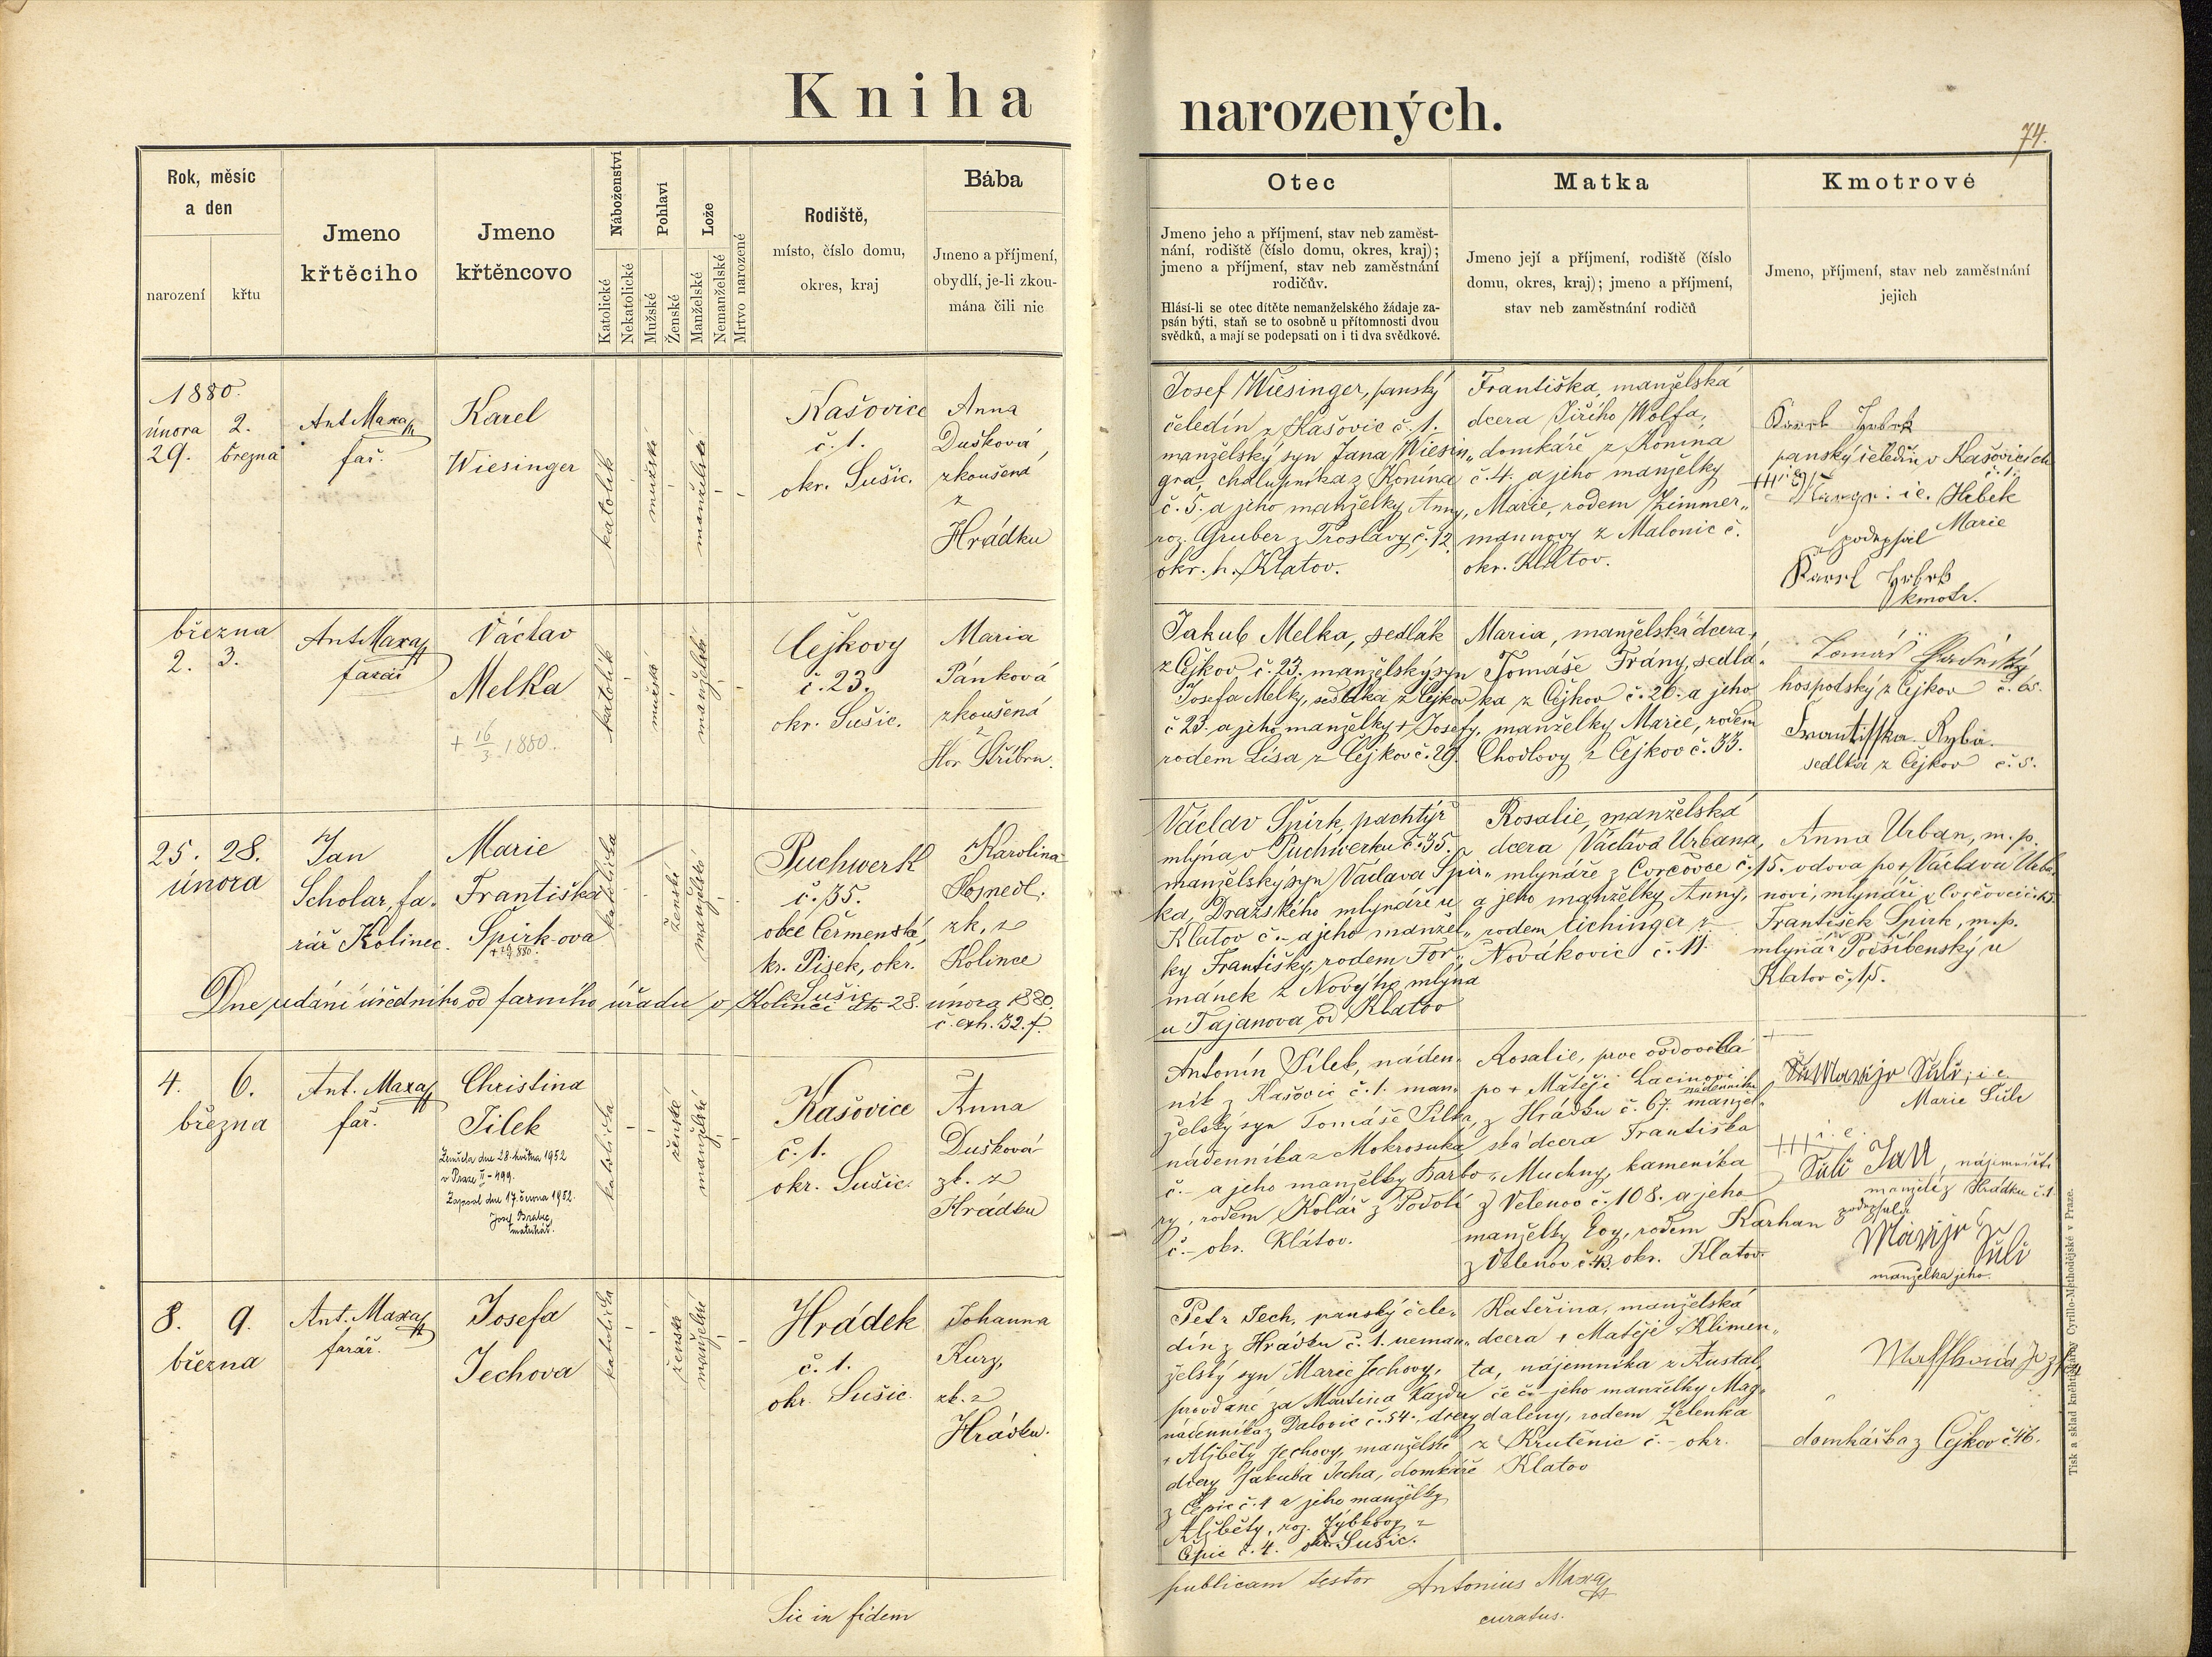 Kniha narozených.
74.
Rok, měsíc
a den
narození
křtu
Jmeno
křtěcího
Jmeno
křtěncovo
Náboženství
Katolické
Nekatolické
Pohlaví
Mužské
Ženské
Lože
Manželské
Nemanželské
Mrtvo narozené
Rodiště,
místo, číslo domu,
okres, kraj
Bába
Jmeno a příjmení,
obydlí, je-li zkou-
mána čili nic
Otec
Jmeno jeho a příjmení, stav neb zaměst-
nání, rodiště (číslo domu, okres, kraj);
jmeno a příjmení, stav neb zaměstnání
rodičův.
Hlásí-li se otec dítěte nemanželského žádaje za-
psán býti, staň se to osobně u přítomnosti dvou
svědků, a mají se podepsati on i ti dva svědkové.
Matka
Jmeno její a příjmení, rodiště (číslo
domu, okres, kraj); jmeno a příjmení,
stav neb zaměstnání rodičů
Kmotrové
Jmeno, příjmení, stav neb zaměstnání
jejich
1880.
února
29.
2.
března
Ant Maxa
far.
Karel
Wiesinger
katolík
mužské
manželské
Kašovice
č. 1.
okr. Sušic.
Anna
Dušková
zkoušená
z
Hrádku
Josef Wiesinger, panský
čeledín z Kašovic č. 1.
manželský syn Jana Wiesin„
gra, chalupníka z Konína
č. 5. a jeho manželky Anny,
roz. Gruber z Froslavy č. 12.
okr. h. Klatov.
Františka, manželská
dcera Jiřího Wolfa,
domkáře z Konína
č. 4. a jeho manželky
Marie, rodem Zimmer„
mannovy z Malonic č.
okr. Klatov.
Karel Hrbek
panský čeledín v Kašovicích
č. 1.
i e. Hrbek
Marie
podepsal
Karel Hrbek
kmotr.
března
2. 3.
Ant Maxa
farář
Václav
Melka
+ 16/3 1880.
katolík
mužské
manželské
Čejkovy
č. 23.
okr. Sušic.
Maria
Pánková
zkoušená
z
Hor Stříbrn.
Jakub Melka, sedlák
z Čejkov č. 23. manželský syn
Josefa Melky, sedláka z Čejkov
č 23. a jeho manželky + Josefy,
rodem Lísa z Čejkov č. 29.
Maria, manželská dcera,
Tomáše Frány, sedlá„
ka z Čejkov č. 20. a jeho
manželky Marie, rodem
Chodlovy z Čejkov č. 33.
Tomáš
hospodský z Čejkov č. 65.
Frantisska Ryba
sedlka z Čejkov č. 5.
25. 28.
února
Jan
Scholar, fa„
rář Kolinec.
Marie
Františka
Špirk-ova
katolička
ženské
manželské
Puchwerk
č. 35.
obce Čermenské,
kr. Písek, okr.
Sušic
Karolina
Hojnedl.
zk. z
Kolince
Dne udání úředního od farního úřadu v Kolinci dto 28. února 1880.
č. exh. 32. f.
Václav Špirk, pachtýř
mlýna v Puchwerku č. 35.
manželský syn Václava Špir„
ka, Dražského mlynáře u
Klatov č. – a jeho manžel„
ky Františky, rodem For„
mánek z Nového mlýna
u Tajanova od Klatov
Rosalie, manželská
dcera Václava Urbana,
mlynáře z Corčovce č. 15.
a jeho manželky Anny,
rodem Eichinger z
Novákovic č. 11.
Anna Urban, m. p.
vdova po + Václavu Urba„
novi, mlynáři z Corčovce č. 15.
František Špirk, m. p.
mlynář Poršíbenský u
Klatov č. 15.
4. 6.
března
Ant. Maxa
far.
Christina
Tilek
Zemřela dne 28. května 1952
v Praze II – 499.
Zapsal dne 17. června 1952.
Josef Brabec,
matrikář.
katolička
ženské
manželské
Kašovice
č. 1.
okr. Sušic.
Anna
Dušková
zk. z
Hrádku
Antonín Tílek, náden„
ník z Kašovic č. 1. man„
želský syn Tomáše Tílka,
nádenníka z Mokrosuka
č. – a jeho manželky Barbo„
ry, rodem Kolář z Podolí
č – okr. Klatov.
Rosalie, prve ovdovělá
po + Matěji Lacinovi
nádenníku
z Hrádku č. 67. manžel„
ská dcera Františka
Muchny, kameníka
z Velenov č. 108. a jeho
manželky Evy, rodem Karhan
z Velenov č. 43. okr. Klatov.
Marije Suli, i. e.
Marie Šůle
+++ i. e.
Suli Jan, nájemníci
manželé z Hrádku č. 1.
podepsala
Marije Suli
manželka jeho.
8. 9.
března
Ant. Maxa
farář.
Josefa
Jechova
katolička
ženské
manželské
Hrádek
č. 1.
okr. Sušic.
Johanna
Kurz,
zk. z
Hrádku.
Petr Jech, panský čele„
dín z Hrádku č. 1. neman„
želský syn Marie Jechovy,
provdané za Martina Kazdu
nádenníka z Dalovic č. 54., dcery
+ Alžběty Jechovy, manželské
dcery Jakuba Jecha, domkáře
z Čepic č. 4 a jeho manželky
Alžběty, roz. Jýbkovy z
Čepic č. 4. okr. Sušic.
Kateřina, manželská
dcera + Matěje Klimen„
ta, nájemníka z Kustal,
če č. – jeho manželky Mag„
daleny, rodem Zelenka
z Krutěnic č. – okr.
Klatov
domkářka z Čejkov č. 46.
Sic in fidem publicam testor Antonius Maxa
curatus.
Tisk a sklad kněhtiskárny Cyrillo-Methodějské v Praze.